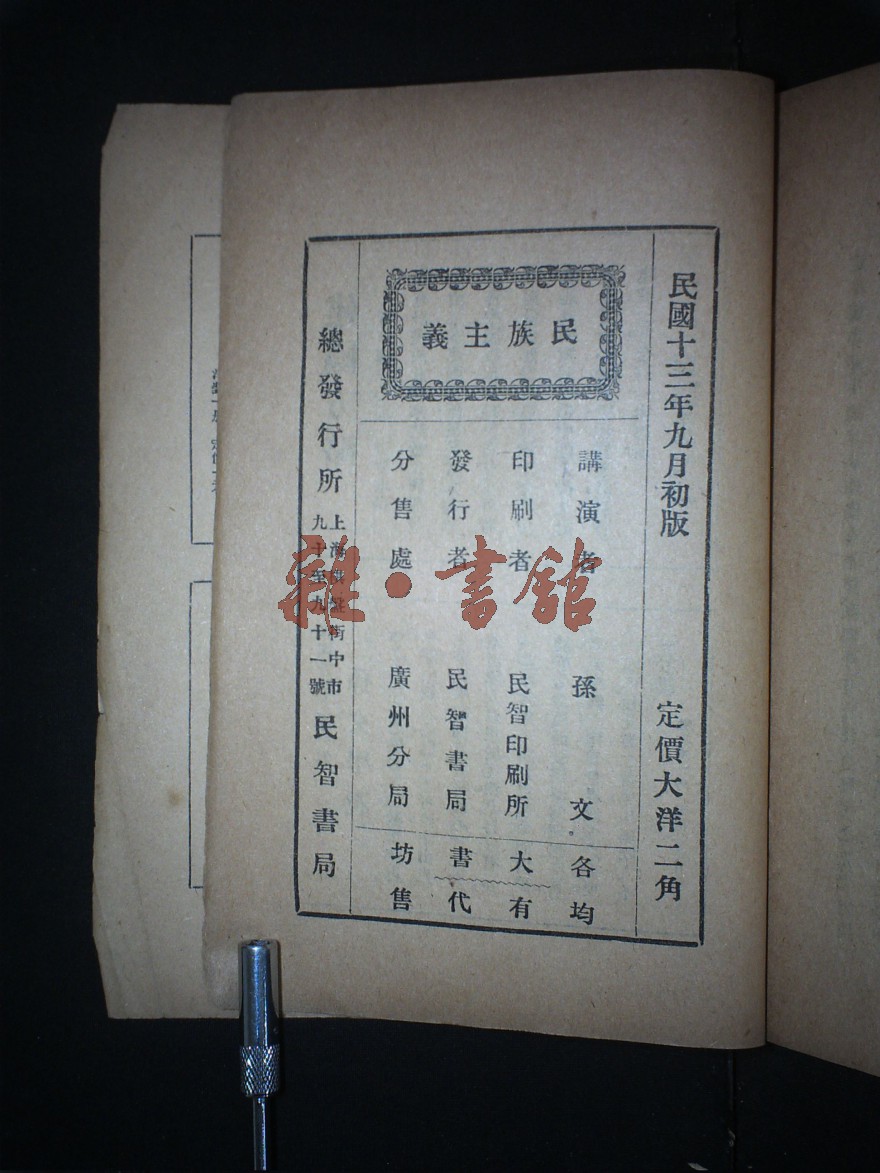 民國十三年九月初版
定價大洋二角
民族主義
講演者 孫文
印刷者 民智印刷所
發行者 民智書局
分售處 廣州分局
各大書坊
均有代售
總發行所
上海棋盤街中市
九十至九十一號
民智書局
雜·書館